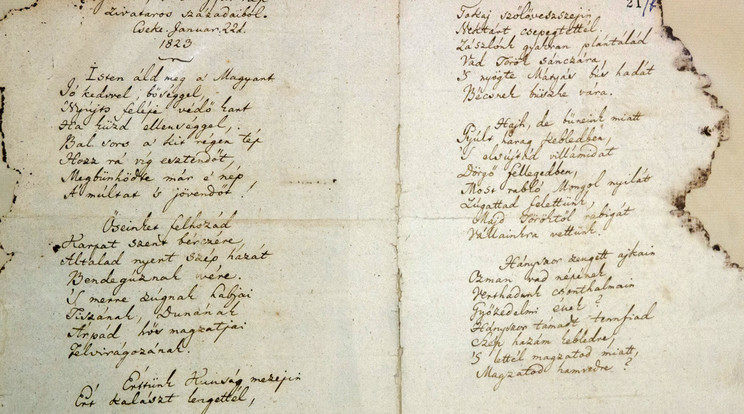 Zivataros századaiból.
Cseke. Januar. 22d.
1823
Isten áld meg a Magyart
Jó kedvvel, bőséggel,
Nyujts feléje védő kart
Ha küzd ellenséggel,
Bal sors a kit régen tép
Hozz rá víg esztendőt,
Megbűnhödte már e' nép
A' múltat 's jövendőt!
Őseinket felhozád
Kárpát szent bérczére,
Általad nyert szép hazát
Bendegúznak vére.
'S merre zúgnak habjai
Tiszának, Dunának
Árpád hős magzatjai
Felvirágozának.
Értünk Kunság mezejin
Ért kalászt lengettél,
21/
Tokaj szőlővesszejin
Nektárt csepegtettél.
Zászlónk gyakran plántálád
Vad Török sánczára
'S nyögte Mátyás bús hadát
Bécsnek büszke vára.
Hajh, de bűneink miatt
Gyúlt harag kebledben,
'S elsujtád villámidat
Dörgő fellegedben,
Most rabló Mongol nyilát
Zúgattad felettünk,
Majd Töröktől rabigát
Vállainkra vettünk.
Hányszor zengett ajkain
Ozman vad népének
Vert hadunk csonthalmain
Győzedelmi ének?
Hányszor támadt tenn fiad
Szép hazám kebledre,
'S lettél magzatod miatt,
Magzatod hamvedre?